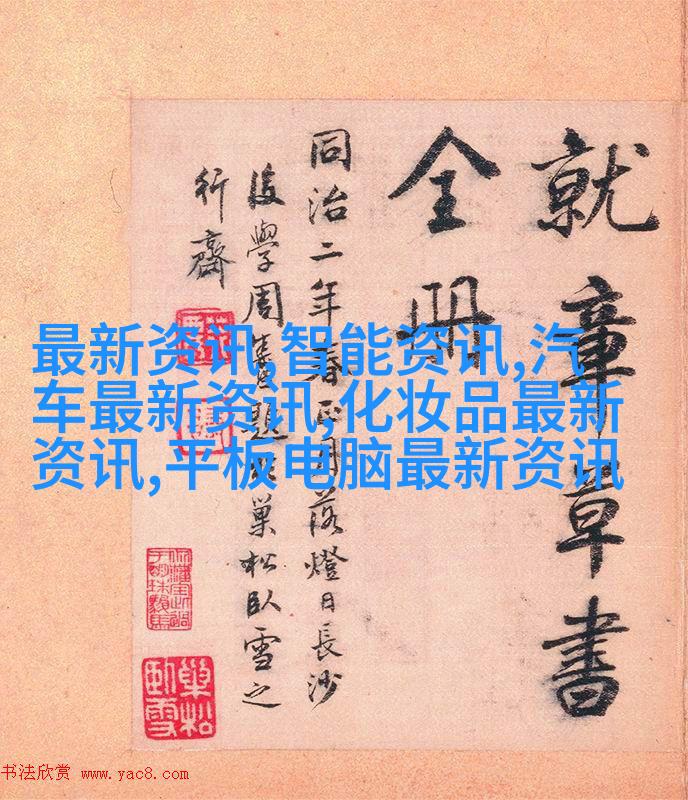 就章草書
全册
同治二年春正月落燈日長沙
後學周題巢松臥雪之
行齋
最新资讯,智能资讯,汽
车最新资讯,化妆品最新
资讯,平板电脑最新资讯
巢松
臥雪
书法欣赏 www.yac8.com